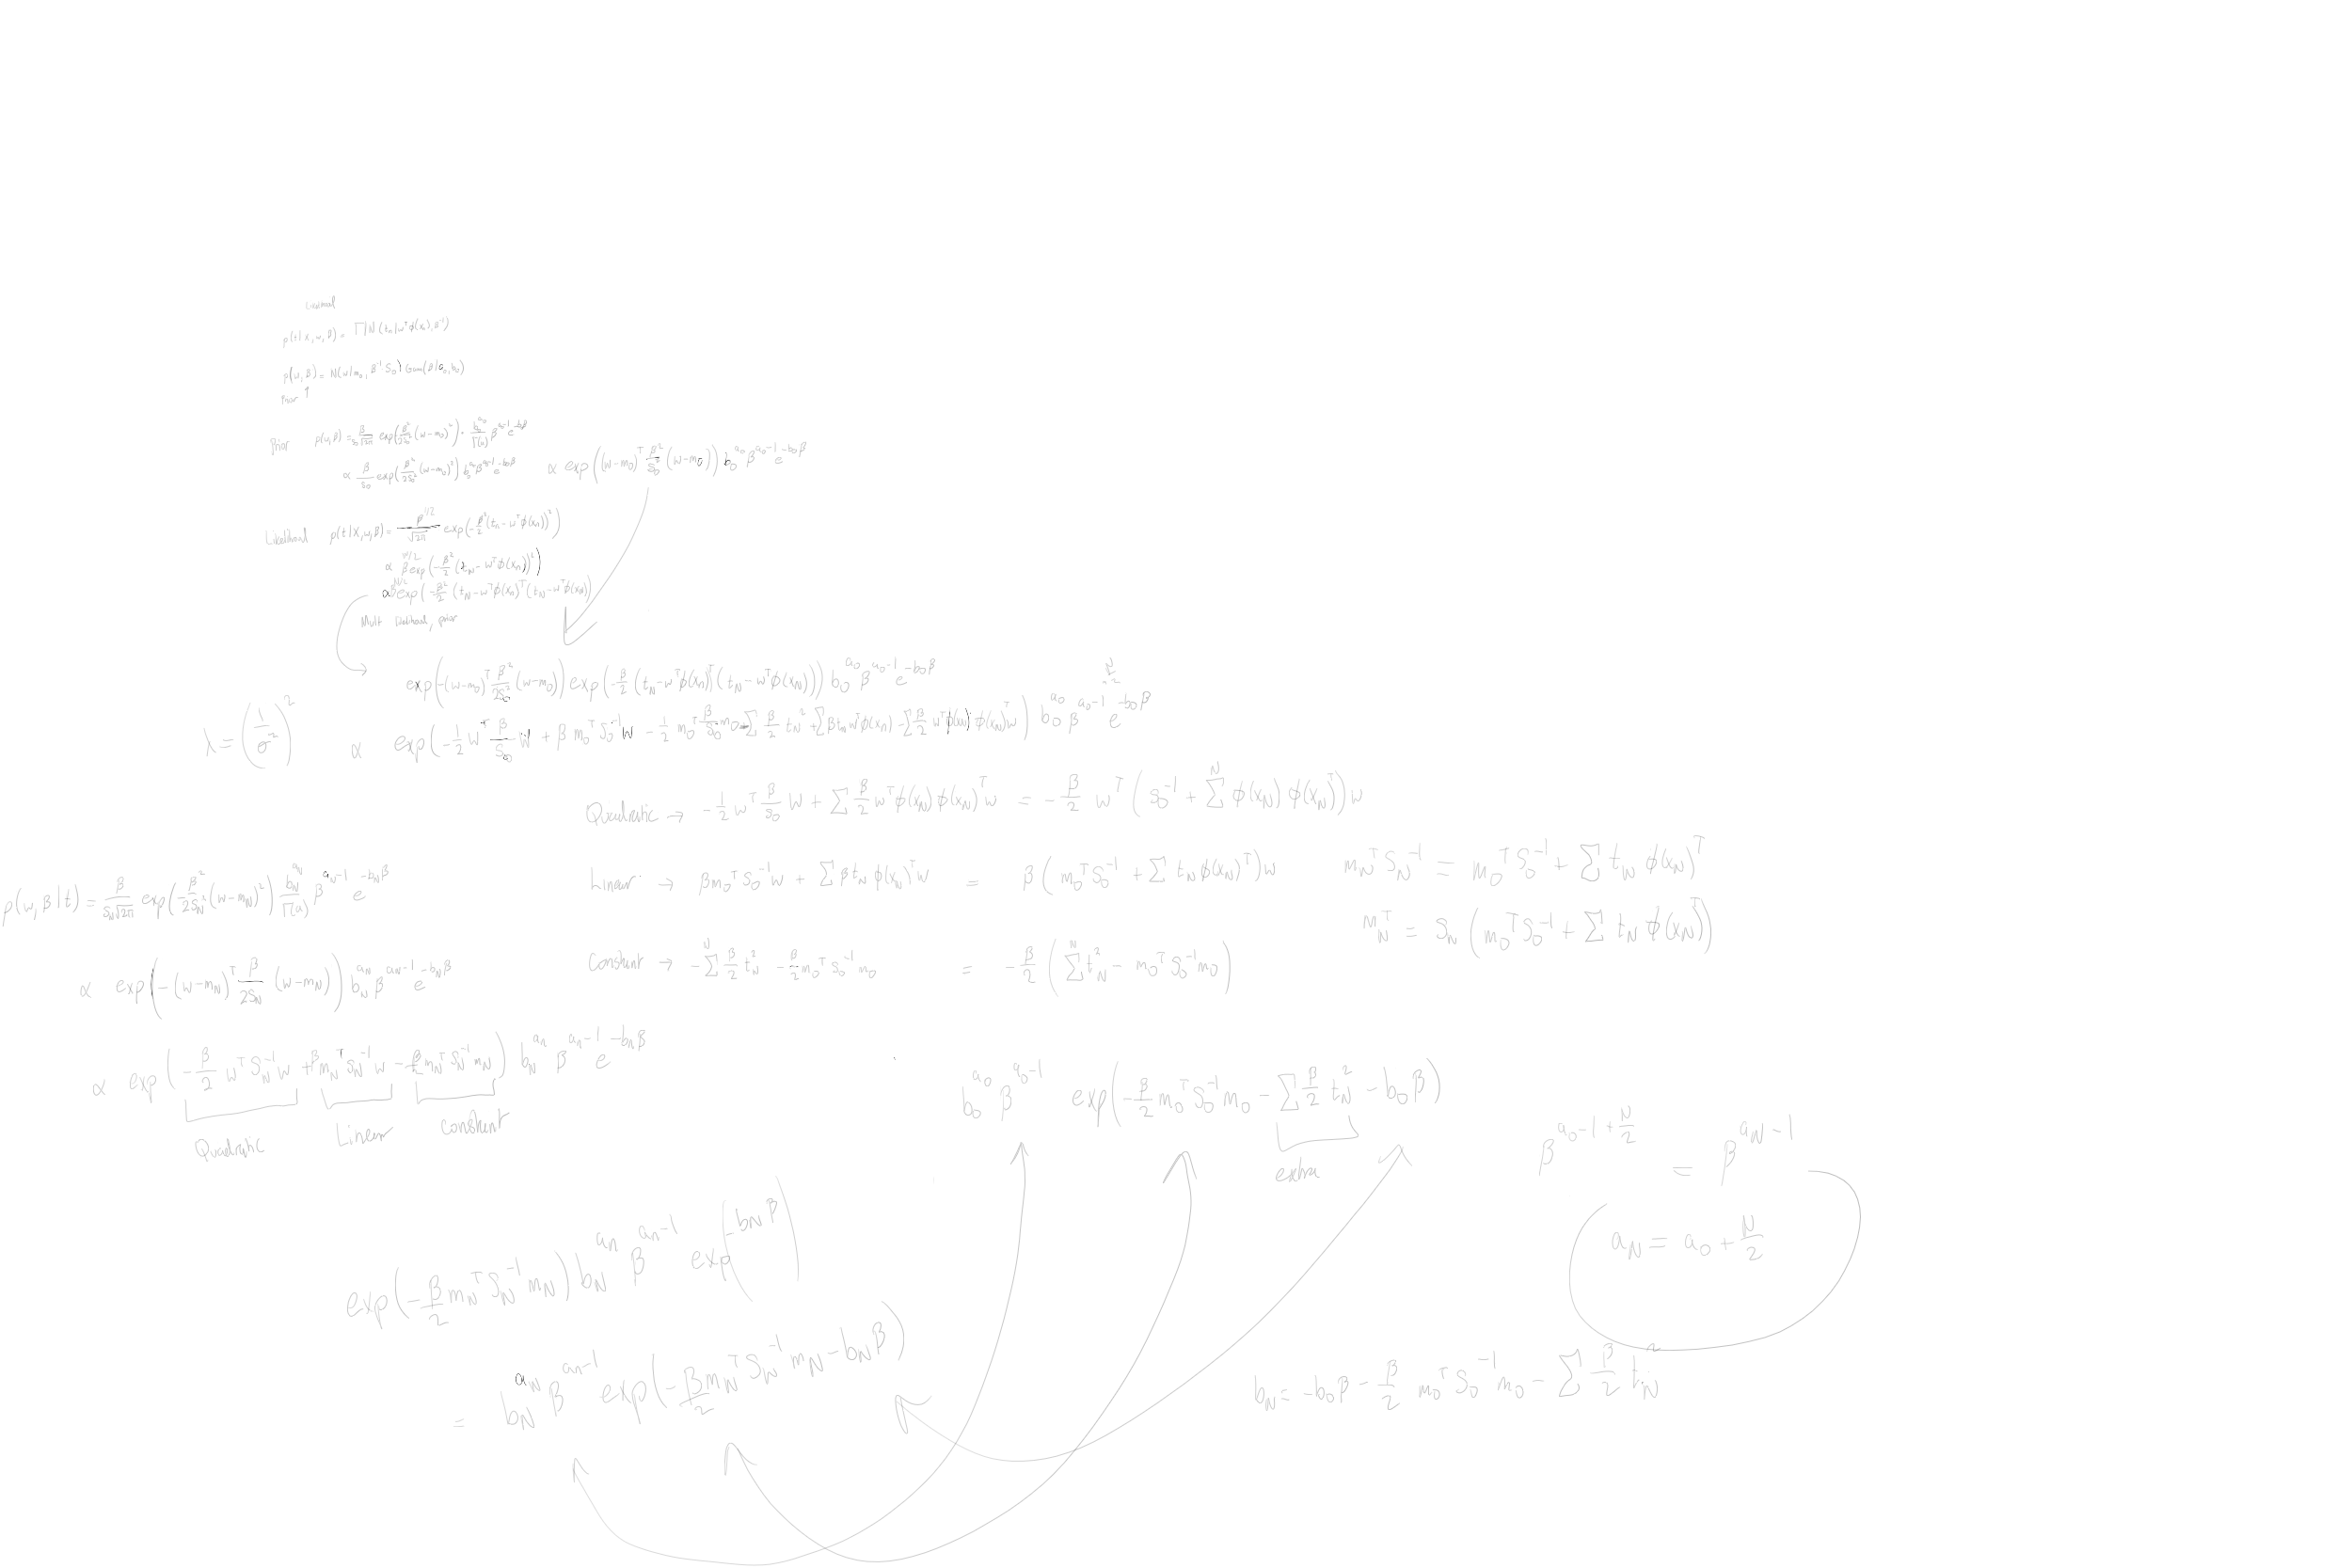 Likelihood
p(t|X, w, β) = ΠN(t_n|w^Tφ(x_n), β^-1)
p(w, β) = N(w|m_0, β^-1 S_0) Gam(β|a_0, b_0)
Prior ↑
Prior p(w, β) = β/(S_0√2π) exp(β^2/2S_0^2 (w-m_0)^2) · b_0^a_0/Γ(a) β^a_0-1 e^-b_0β
∝ β/S_0 exp(β^2/2S_0^2 (w-m_0)^2) b_0^a_0 β^a_0-1 e^-b_0β ∝ exp((w-m_0)^T β^2/S_0^2 (w-m_0)) b_0^a_0 β^a_0-1 e^-b_0β
Likelihood p(t|X, w, β) = β^1/2/√2π exp(-β^2/2 (t_n - w^Tφ(x_n))^2)
∝ β^N/2 exp(-β^2/2 (t_N - w^Tφ(x_n))^2)
∝ β^N/2 exp(-β^2/2 (t_N - w^Tφ(x_n))^T (t_N - w^Tφ(x_N))
Mult likelihood, prior
exp(-(w-m_0)^T β^2/2S_0^2 (w-m_0)) exp(-β/2 (t_N - w^Tφ(x_n))^T (t_N - w^Tφ(x_N))) b_0^a_0 β^a_0-1 e^-b_0β
λ = (1/σ^2)^2
∝ exp(-1/2 w^T β/S_0 w + β m_0^T S_0^-1 w - 1/2 m_0^T β/S_0 m_0 - Σ β/2 t_N^2 + Σ β t_n w^Tφ(x_n) - Σ β/2 w^Tφ(x_N) φ(x_N)^T w) b_0^a_0 β^a_0-1 e^-b_0β N/2
Quadratic → -1/2 w^T β/S_0 w + Σ β/2 w^Tφ(x_N)φ(x_N)^T w = -β/2 w^T (S_0^-1 + Σ^N φ(x_N) φ(x_N)^T) w
Linear → β m_0^T S_0^-1 w + Σ β t_N φ(x_N)^T w = β (m_0^T S_0^-1 + Σ t_N φ(x_N)^T) w
m_N^T S_N^-1 = m_0^T S_0^-1 + Σ t_N φ(x_N)^T
m_N^T = S_N (m_0^T S_0^-1 + Σ t_N φ(x_N)^T)
Constant → -Σ^N β/2 t_N^2 - β/2 m_0^T S_0^-1 m_0 = -β/2 (Σ^N t_N^2 - m_0^T S_0^-1 m_0)
p(w, β|t) = β/(S_N√2π) exp(β^2/2S_N^2 (w-m_N)^2) b_N^a_N/Γ(a) β^a_N-1 e^-b_Nβ
∝ exp(-(w-m_N)^T β/2S_N (w-m_N)) b_N^a_N β^a_N-1 e^-b_Nβ
∝ exp(-β/2 w^T S_N^-1 w + β m_N^T S_N^-1 w - β/2 m_N^T S_N^-1 m_N) b_N^a_n β^a_n-1 e^-b_nβ
Quadratic Linear Constant
b_0^a_0 β^a_0-1 exp(-β/2 m_0^T S_0^-1 m_0 - Σ β/2 t_N^2 - b_0β)
extra
β^a_0-1+N/2 = β^a_N-1
a_N = a_0 + N/2
exp(-β/2 m_N^T S_N^-1 m_N) b_N^a_n β^a_n-1 exp(-b_Nβ)
= b_N^a_N β^a_n-1 exp(-β/2 m_N^T S_N^-1 m_N - b_Nβ)
b_N = -b_0β - β/2 m_0^T S_0^-1 m_0 - Σ β/2 t_N^2